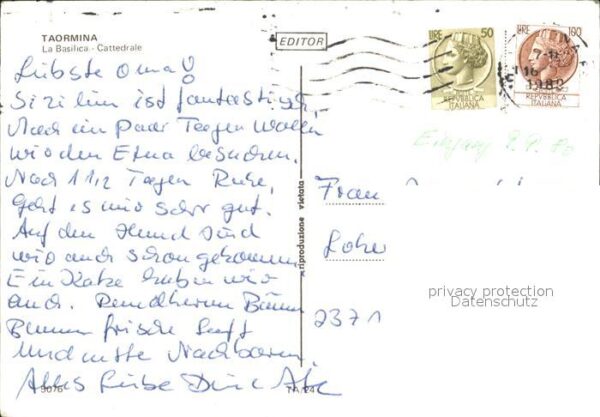 TAORMINA
La Basilica - Cattedrale
EDITOR
LIRE 50
REPVBBLICA
ITALIANA
LIRE 100
REPVBBLICA
ITALIANA
Liebste Oma!
Sizilien ist fantastisch,
Nach ein paar Tagen wollen
wir den Etna besuchen.
Nach 1 1/2 Tagen Ruhe,
Geht es mir sehr gut.
Auf den Hund sind
wir auch schon gekommen
Ein Katze haben wir
auch. Bäum
Blumen frische Luft
Und nette Nachbaren.
Alles Liebe Deine
Eingang 9.9.80
riproduzione vietata
Frau
Loher
2371
privacy protection
Datenschutz